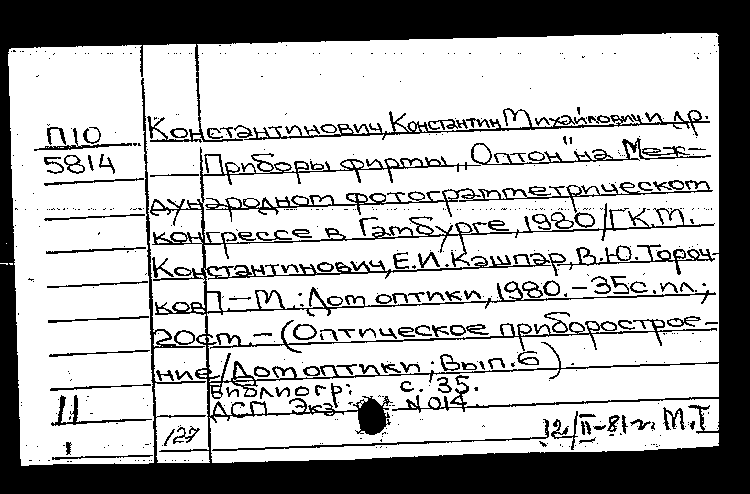 П10 Константинович, Константин Михайлович и др.
5814 Приборы фирмы „Оптон" на Меж-
дународном фотограмметрическом
конгрессе в Гамбурге, 1980 / [К.М.
Константинович, Е.И. Кашпар, В.Ю. Тороч-
ков]. – М.: Дом оптики, 1980. – 35 с. ил.;
20 см. – (Оптическое приборострое-
ние / Дом оптики; Вып. 6)
Библиогр: с. 35.
ДСП Экз N 014.
127
12/II-81 г. М.Т